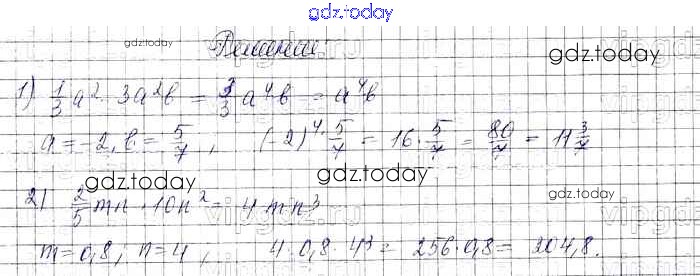 gdz.today
Решение
gdz.today
gdz.today
1) 1/3 a² · 3a²b = 3/3 a⁴b = a⁴b
a = -2, b = 5/7, (-2)⁴ · 5/7 = 16 · 5/7 = 80/7 = 11 3/7
gdz.today
gdz.today
gdz.today
2) 2/5 mn · 10n² = 4mn³
m = 0,8; n = 4, 4 · 0,8 · 4³ = 256 · 0,8 = 204,8.